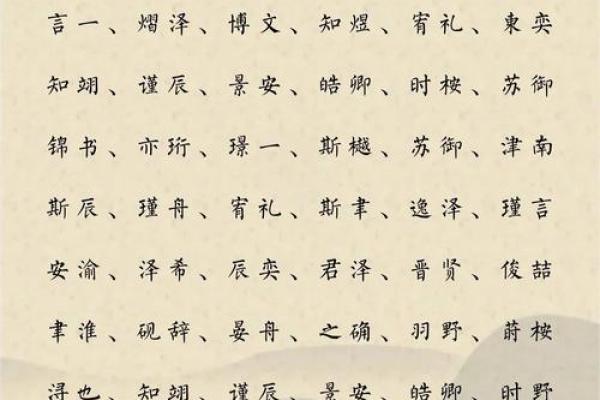 言一、熠泽、博文、知煜、宥礼、東奕
知翊、谨辰、景安、皓卿、时桉、苏御
锦书、亦珩、璟一、斯樾、苏御、津南
斯辰、瑾舟、宥礼、斯聿、逸泽、瑾言
安渝、泽希、辰奕、君泽、晋贤、俊喆
聿淮、砚辞、晏舟、之确、羽野、莳桉
浔也、知翊、谨辰、景安、皓卿、时野